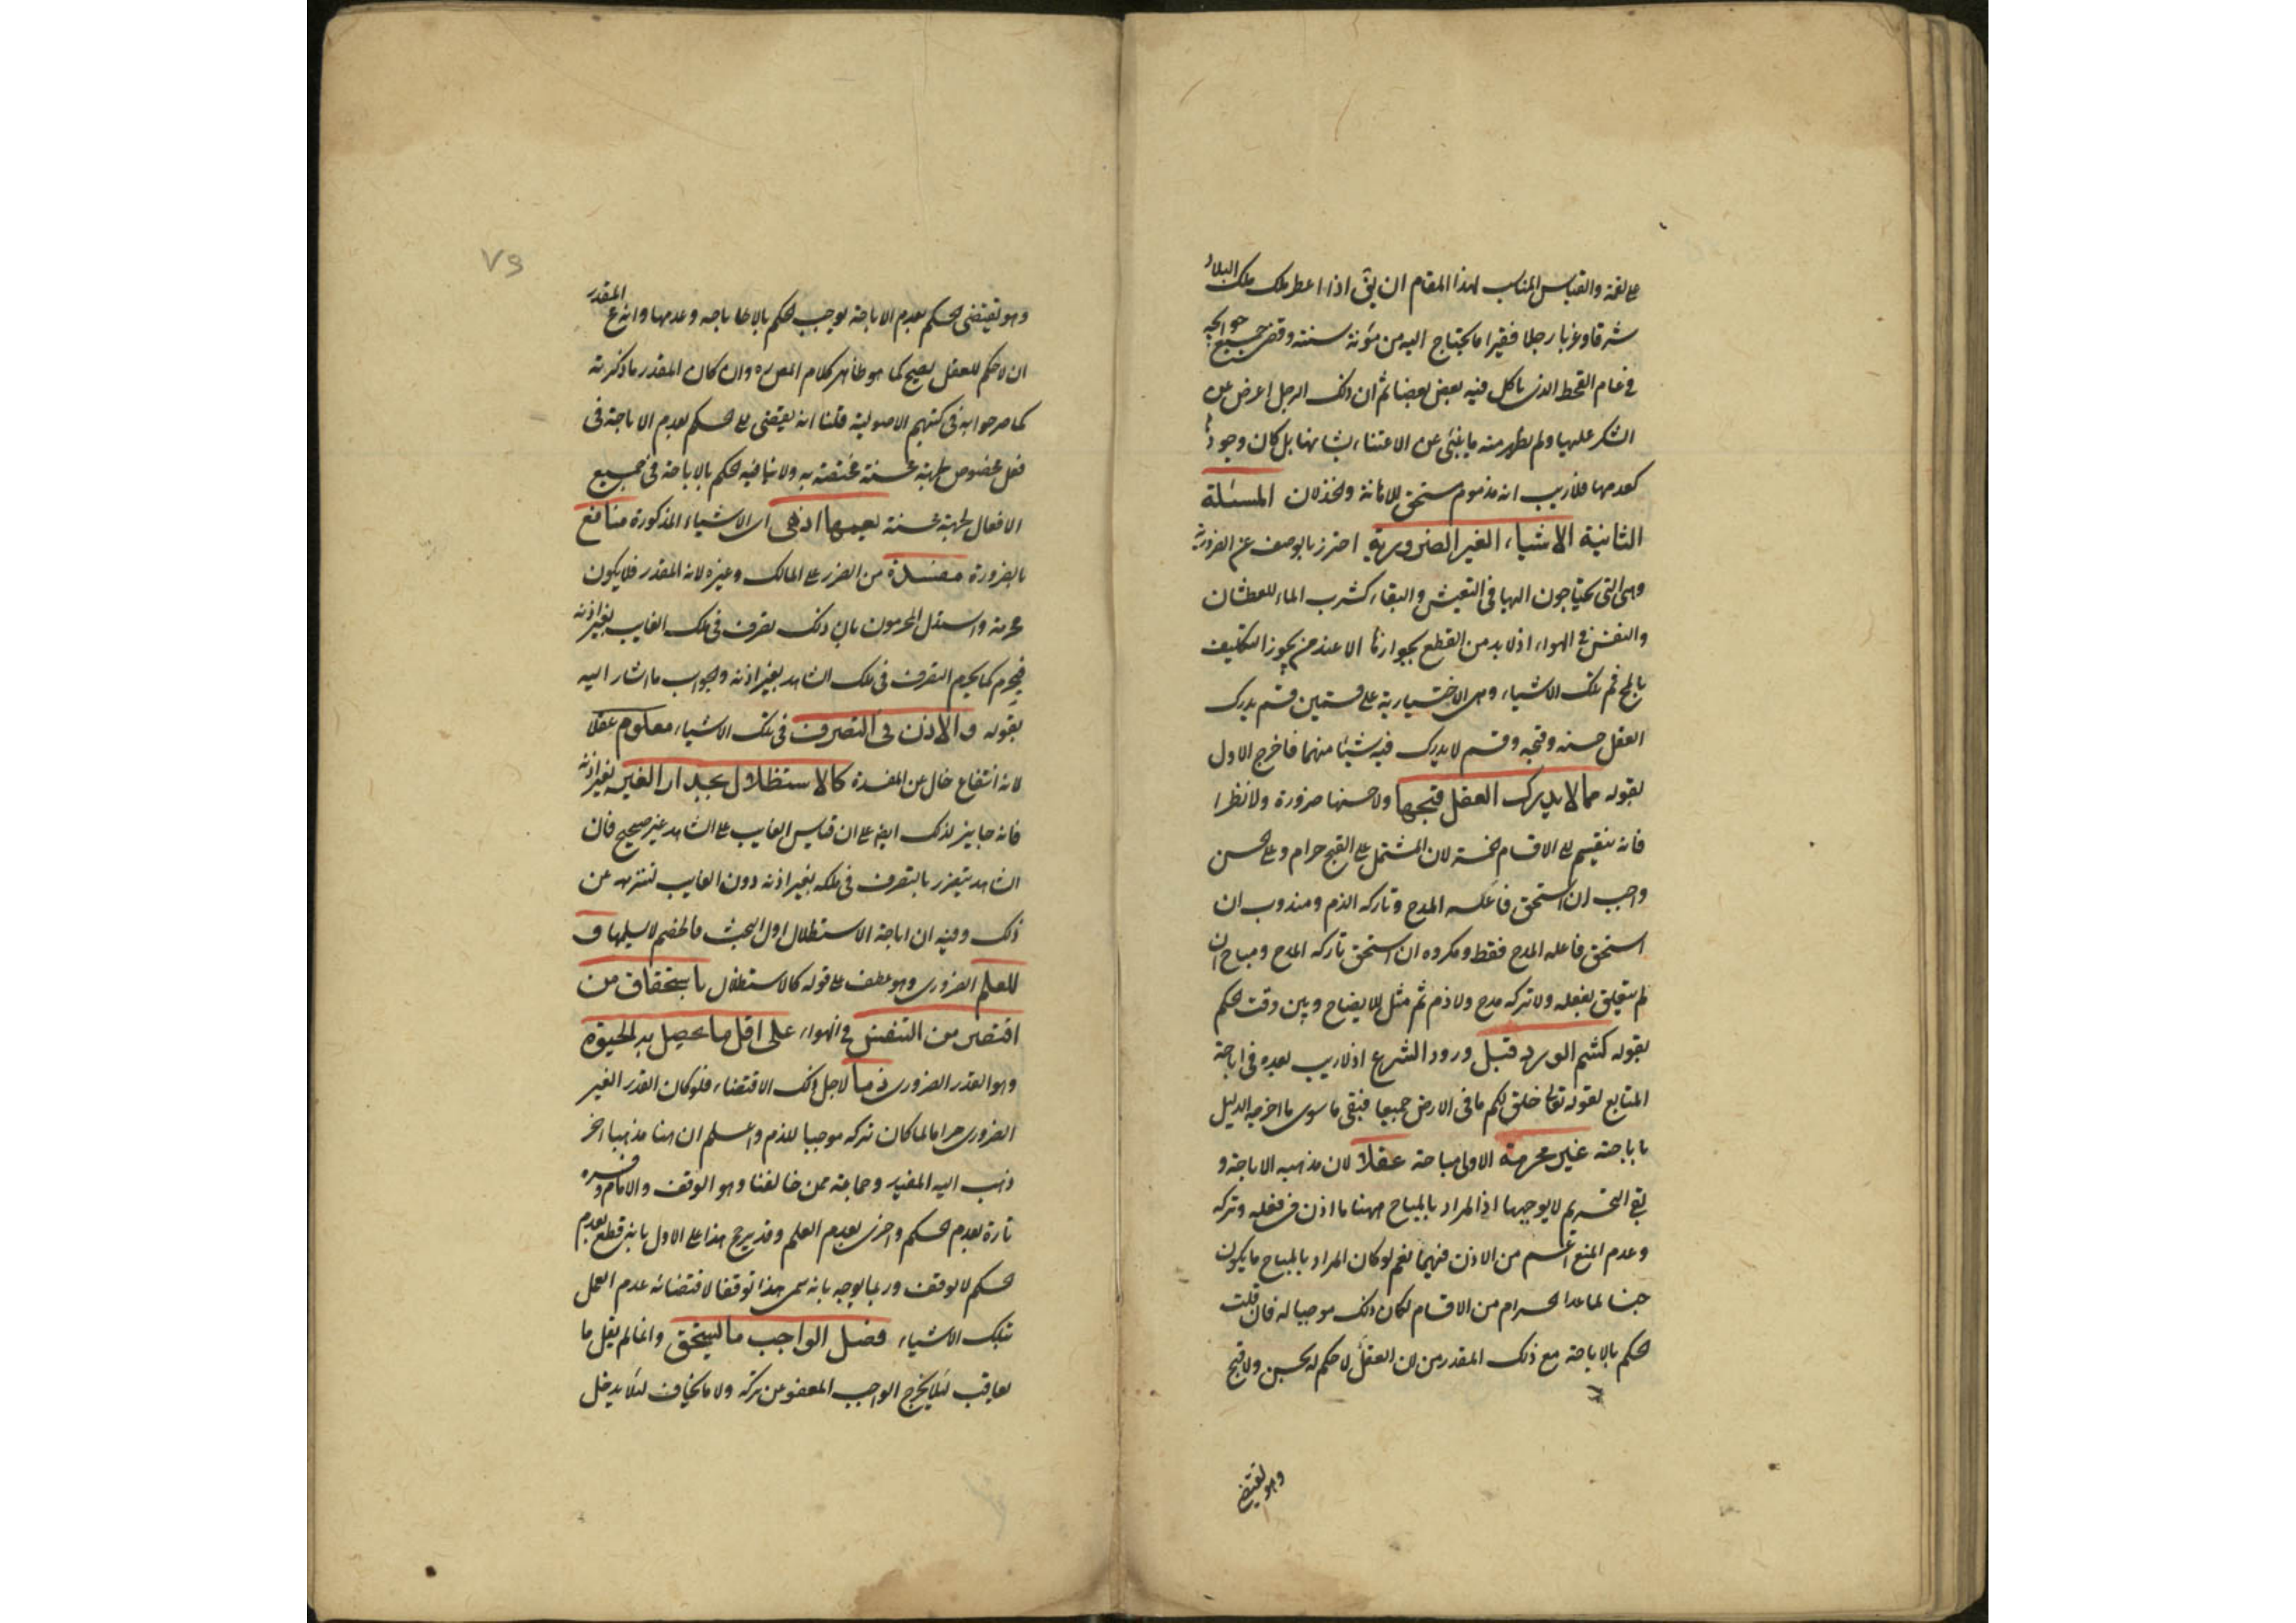 على لقمة والقياس المناسب لهذا المقام ان يق اذا اعطى ملك ملك البلاد
شرقا وغربا رجلا فقيرا ما يحتاج اليه من مؤنة سنته وقضى جميع حوائجه
في عام القحط الذى ياكل فيه بعض بعضا ثم ان ذلك الرجل اعرض عن
الشكر عليها ولم يظهر منه ما ينبئ عن الاعتناء بشانها بل كان وجودها
كعدمها فلا ريب انه مذموم مستحق للاهانة والخذلان المسئلة
الثانية الاشياء الغير الضرورية احترز بالوصف عن الضرورية
وهى التى يحتاجون اليها فى التعيش والبقاء كشرب الماء للعطشان
والتنفس في الهواء اذ لا بد من القطع بجوازها الا عند من يجوز التكليف
بالمح ثم تلك الاشياء وهى الاختيارية على قسمين قسم يدرك
العقل حسنه وقبحه وقسم لا يدرك فيه شيئا منهما فاخرج الاول
بقوله مما لا يدرك العقل قبحها ولا حسنها ضرورة ولا نظرا
فانه ينقسم الى الاقسام الخمسة لان المشتمل على القبح حرام وعلى الحسن
واجب ان استحق فاعله المدح وتاركه الذم ومندوب ان
استحق فاعله المدح فقط ومكروه ان استحق تاركه المدح ومباح ان
لم يتعلق بفعله ولا تركه مدح ولا ذم ثم مثل للايضاح وبين وقت الحكم
بقوله كشم الورد قبل ورود الشرع اذ لا ريب بعده فى اباحة
المتابع لقوله تعالى خلق لكم ما فى الارض جميعا فبقى ما سوى ما اخرجه الدليل
باباحته غير محرمة الاولى مباحة عقلا لان مذهبه الاباحة و
نفى التحريم لا يوجبها اذ المراد بالمباح ههنا ما اذن فى فعله وتركه
وعدم المنع اعم من الاذن فيهما نعم لو كان المراد بالمباح ما يكون
جنسا لما عدا الحرام من الاقسام لكان ذلك موجبا له فان قلت
الحكم بالاباحة مع ذلك المقدر من ان العقل لا حكم له بحسن ولا قبح
وهو يقتضى
٧٩
وهو يقتضى الحكم بعدم الاباحة يوجب الحكم بالاباحة وعدمها وانه ع المقدر
ان لا حكم للعقل يصح كما هو ظاهر كلام المص ره وان كان المقدر ما ذكرته
كما صرحوا به فى كتبهم الاصولية قلنا انه يقتضى على الحكم بعدم الاباحة فى
فعل مخصوص لجهة محسنة مختصة به ولا ينافيه الحكم بالاباحة فى جميع
الافعال لجهة محسنة يعمها اذ هى اى الاشياء المذكورة منافع
بالضرورة مفسدة من الضرر على المالك وغيره لانه المقدر فلا يكون
محرمة واستدل المحرمون بان ذلك تصرف فى ملك الغايب بغير اذنه
فيحرم كما يحرم التصرف فى ملك الشاهد بغير اذنه والجواب ما اشار اليه
بقوله والاذن فى التصرف فى تلك الاشياء معلوم عقلا
لانه انتفاع خال عن المفسدة كالاستظلال بجدار الغير بغير اذنه
فانه جايز لذلك ايضا على ان قياس الغايب على الشاهد غير صحيح فان
الشاهد يتضرر بالتصرف فى ملكه بغير اذنه دون الغايب لتنزهه عن
ذلك وفيه ان اباحة الاستظلال اول البحث فالخصم لا يسلمها و
للعلم الضرورى وهو عطف على قوله كالاستظلال باستحقاق من
اقتصر من التنفس فى الهواء على اقل ما يحصل به الحيوة
وهو القدر الضرورى ذما لاجل ذلك الاقتضاء فلو كان القدر الغير
الضرورى حراما لما كان تركه موجبا للذم واعلم ان هنا مذهبا اخر
ذهب اليه المفيد وجماعة ممن خالفنا وهو الوقف والامام فسره
تارة بعدم الحكم واخرى بعدم العلم وقد يرجح هذا على الاول بانه قطع بعدم
الحكم لا توقف وربما يوجه بانه سمى هذا توقفا لاقتضائه عدم العمل
بتلك الاشياء فصل الواجب ما يستحق وانما لم يقل ما
يعاقب لئلا يخرج الواجب المعفو عن تركه ولا ما يخاف لئلا يدخل